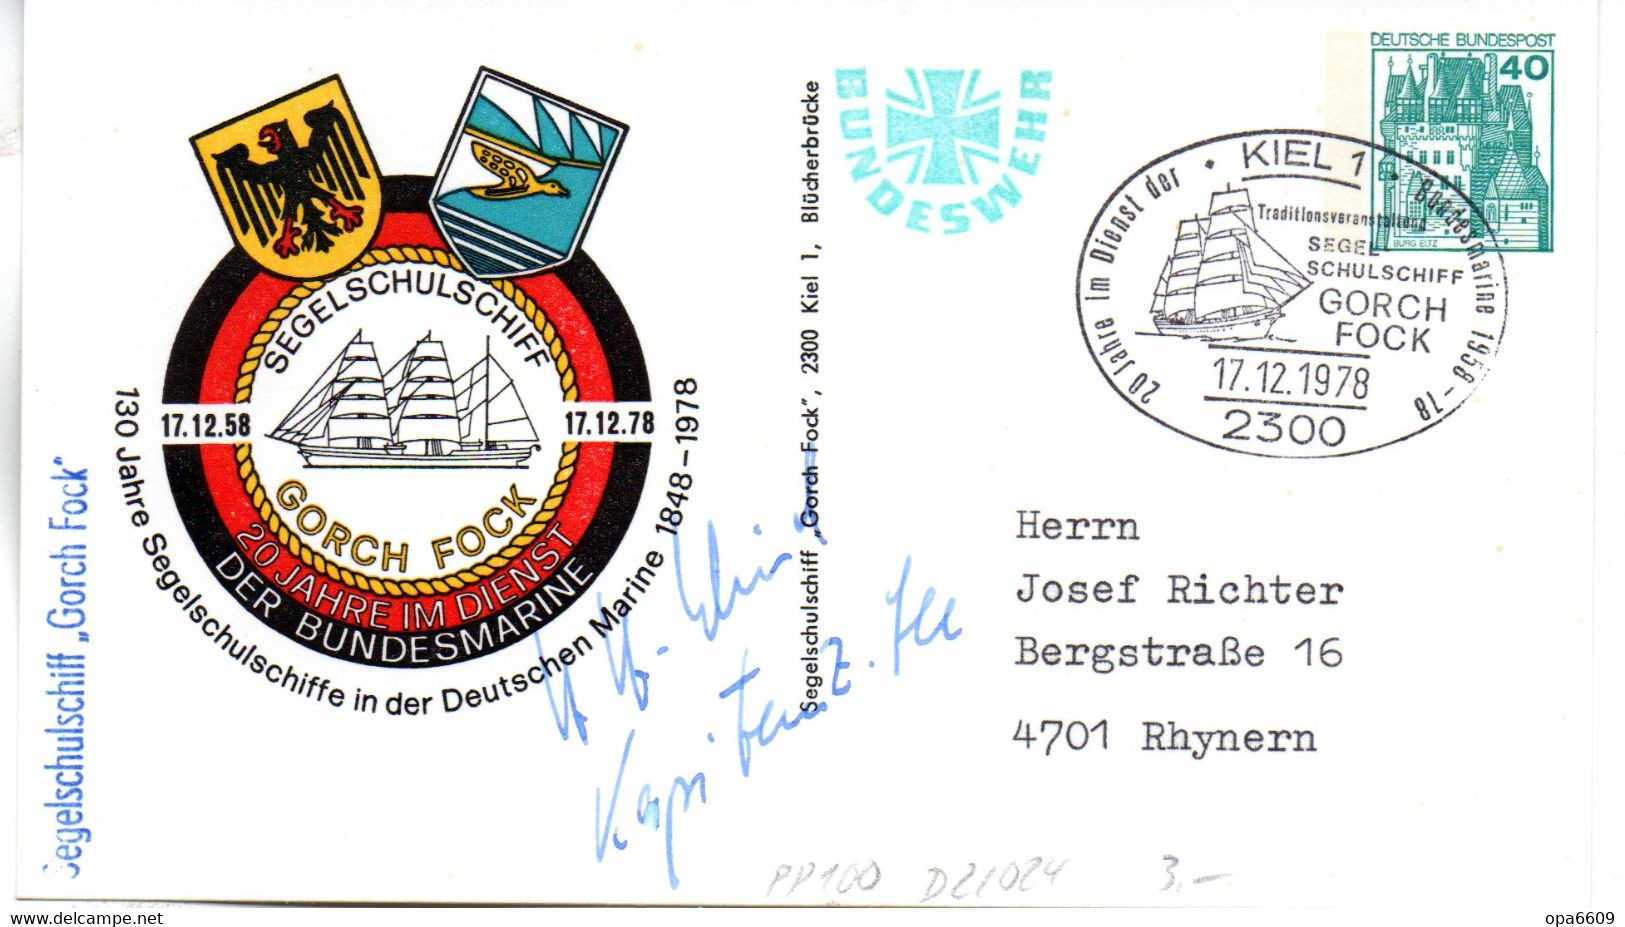 SEGELSCHULSCHIFF
17.12.58
17.12.78
GORCH FOCK
20 JAHRE IM DIENST
DER BUNDESMARINE
130 Jahre Segelschulschiffe in der Deutschen Marine 1848-1978
Segelschulschiff „Gorch Fock"
Segelschulschiff „Gorch Fock", 2300 Kiel 1, Blücherbrücke
BUNDESWEHR
DEUTSCHE BUNDESPOST
40
BURG ELTZ
KIEL 1
20 Jahre im Dienst der Bundesmarine 1958-78
Traditionsveranstaltung
SEGEL
SCHULSCHIFF
GORCH
FOCK
17.12.1978
2300
Herrn
Josef Richter
Bergstraße 16
4701 Rhynern
Kapitän z. See
PP100 D2/024 3,-
delcampe.net
opa6609